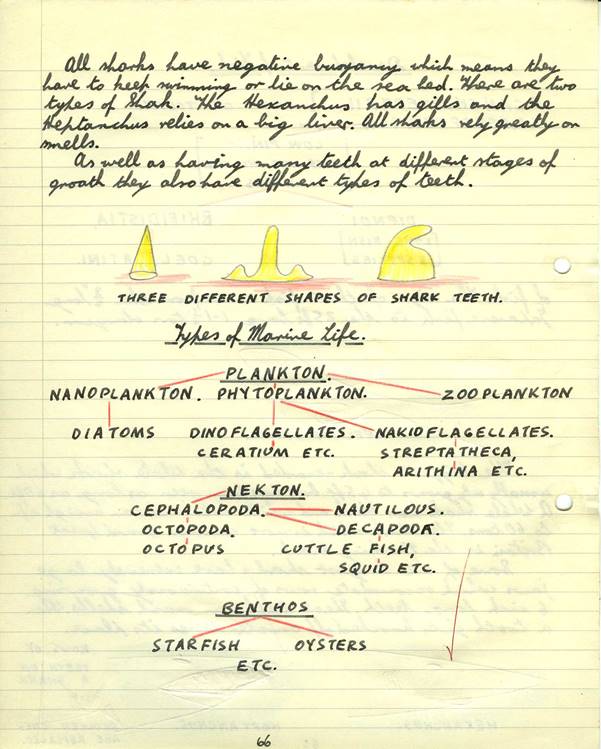 All sharks have negative buoyancy which means they
have to keep swimming or lie on the sea bed. There are two
types of Shak. The Hexanchus has gills and the
Heptanchus relies on a big liver. All sharks rely greatly on
smells.
As well as having many teeth at different stages of
groath they also have different types of teeth.
THREE DIFFERENT SHAPES OF SHARK TEETH.
Types of Marine Life.
PLANKTON.
NANOPLANKTON. PHYTOPLANKTON. ZOOPLANKTON
DIATOMS DINOFLAGELLATES. NAKIDFLAGELLATES.
CERATIUM ETC. STREPTATHECA,
ARITHINA ETC.
NEKTON.
CEPHALOPODA. NAUTILOUS.
OCTOPODA. DECAPODA.
OCTOPUS CUTTLE FISH,
SQUID ETC.
BENTHOS
STARFISH OYSTERS
ETC.
66